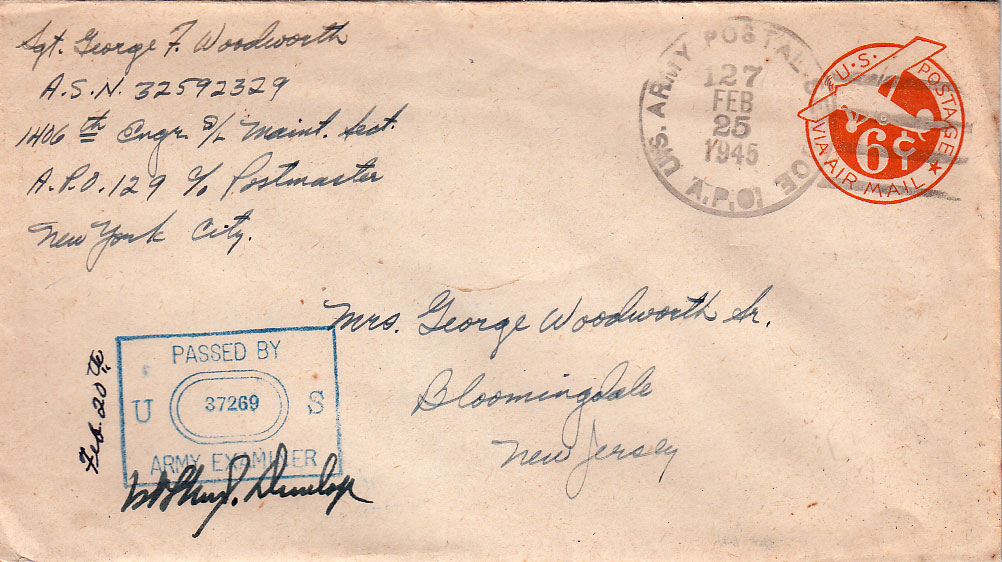 Sgt. George F. Woodworth
A.S.N. 32592329
1406th Engr. S/L Maint. Sect.
A.P.O. 129 c/o Postmaster
New York City.
U.S. ARMY POSTAL
A.P.O.
127
FEB
25
1945
U.S. POSTAGE
6¢
VIA AIR MAIL
Mrs. George Woodworth Sr.
Bloomingdale
New Jersey
Feb. 20th
PASSED BY
U 37269 S
ARMY EXAMINER
Dunlop